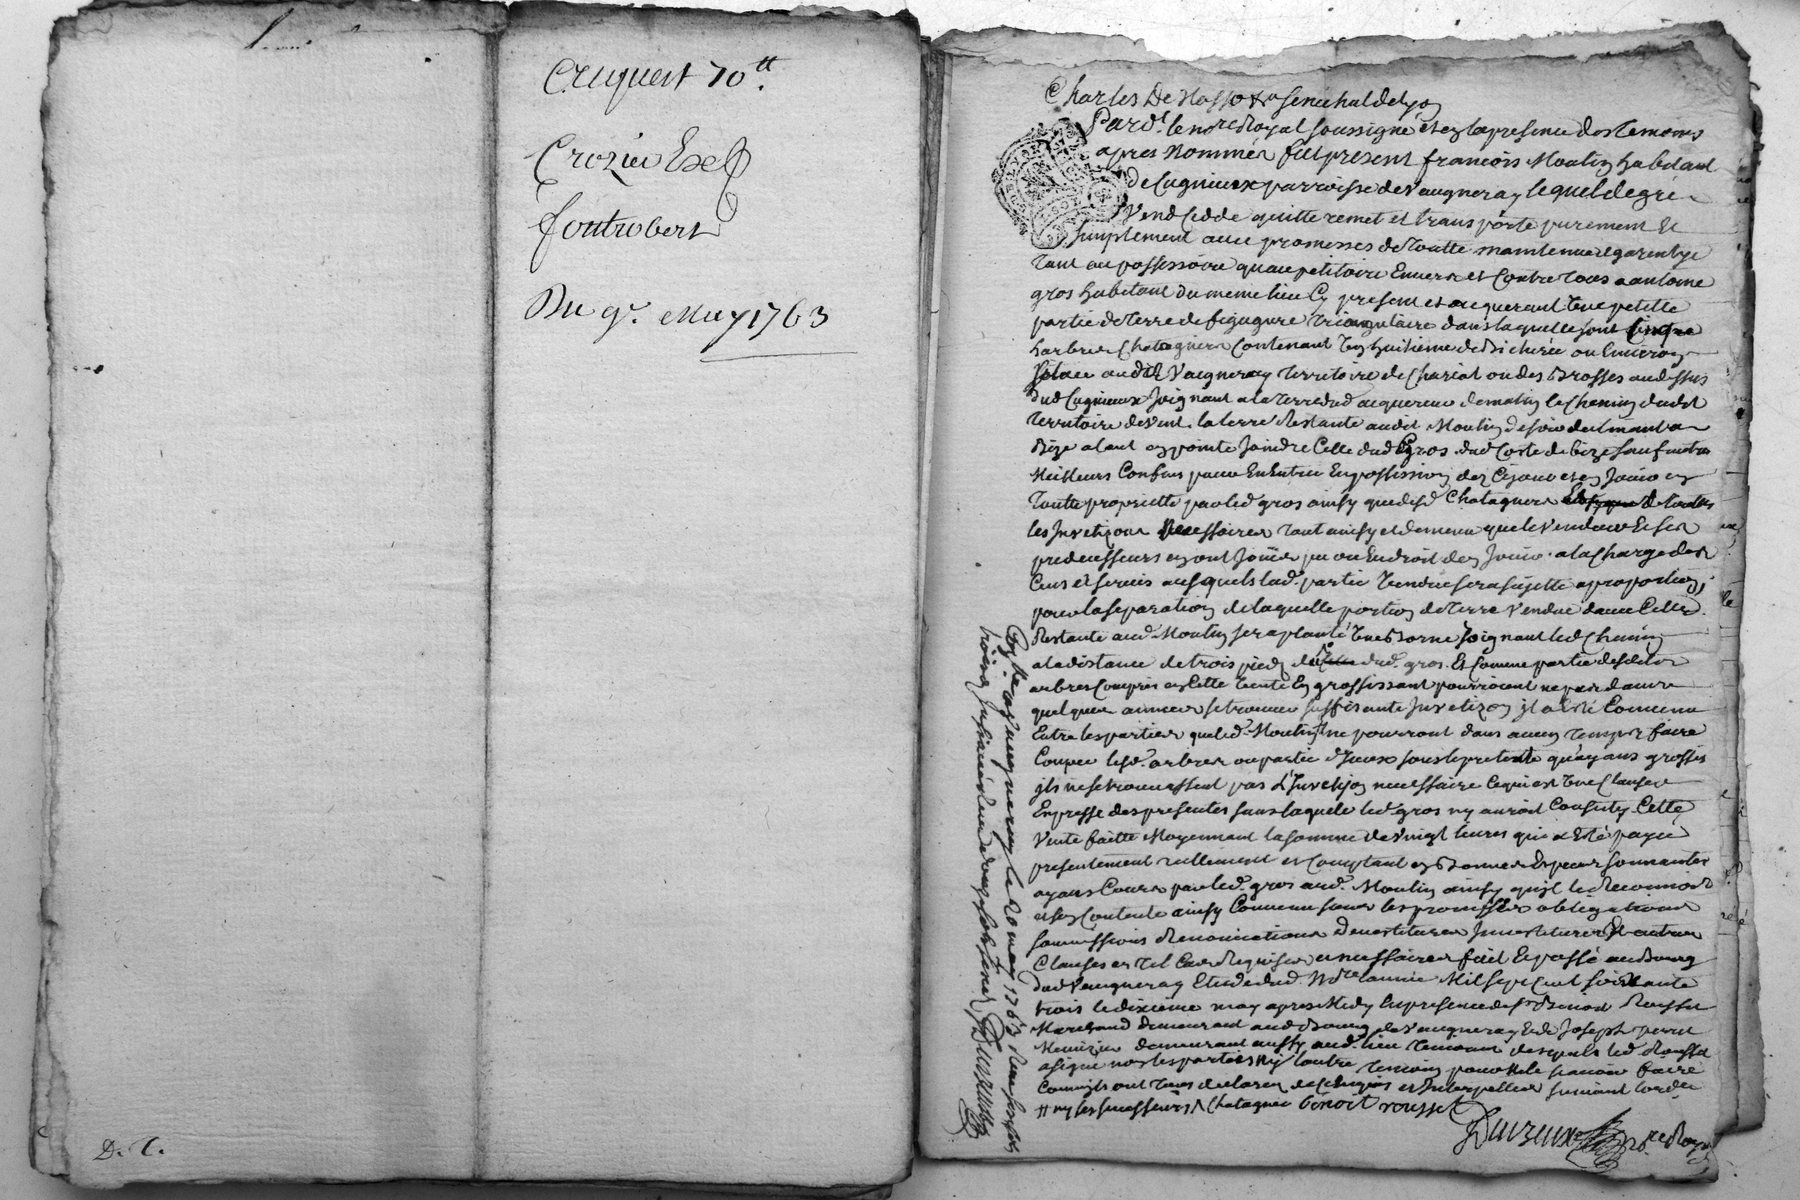 Cruquest 70tt.
Crozier
fontrobert
Du 9e. May 1763
D. C.
Charles De Masso senechal de lyon
Pard.t le no.re Royal soussigné et en la presence des temoins
apres nommés fut present françois Moulin habitant
de Cugnieux parroisse de Vaugneray lequel de gré
Vend cedde quitte remet et transporte purement et
simplement avec promesses de toutte maintenue et garentye
tant au possessoire qu'au petitoire Envers et Contre tous a antoine
gros habitant du meme lieu Cy present et acquerant Une petitte
partie de terre de figugure triangulaire dans laquelle sont Cinq
harbres Chatagners Contenant Un huitieme de Bicherée ou Environ
situee audit Vaugneray territoire de Chariot ou des Brosses au dessus
dud Cugnieux Joignant a la terre dud acquereur de matin le Chemin dudit
territoire de vent. la terre Restante audit Moulin de soir
Bize alant en pointe Joindre Celle dud gros dud Coste de bize sauf autres
Meilleurs Confins pour En Entrer En possession des Cejour et en Jouir en
toutte proprietté par led gros ainsy que desd Chatagners de toutes
les Jnvetizons Necessaires tout ainsy et de meme que le Vendeur Et ses
predecesseurs en ont Joüis pu ou Endroit den Jouir. a la Charge des
Cens et servis ausquels lad. partie Vendue sera sujette a proportion,
pour la separation de laquelle portion de terre Vendue davec Celle
Restante aud. Moulin sera planté Une Borne Joignant led Chemin
a la distance de trois pieds dud. gros. Et Comme partie desdits
arbres Compris en Cette Vente En grossissant pourroient ne pas dans
quelques annees se trouver suffisante Jnvetizon jl a Esté Convenu
Entre les parties que led. Moulin ne pourront dans aucun temps faire
Couper lesd. arbres ou partie d'Jceux sous le pretexte qu'ayans grossis
jls ne se trouvassent pas d'Jnvetizon necessaire Ce qui est Une Clause
Expresse des presentes sans laquelle led gros ny auroit Consenty Cette
Vente faitte Moyennant la somme de Vingt livres qui a Esté payée
presentement reellement et Comptant en Bonnes Especes sonnantes
ayans Cours par led. gros aud. Moulin ainsy qu'jl le Reconnoit
et s'en Contente ainsy Convenu sous les promesses obligations
soumissions Renonciations devestitures Jnvestitures Et autres
Clauses en tel Cas Requises et necessaires fait Et passé au Bourg
dud Vaugneray Etude dud. No.re l'année Mil sept Cent soixante
trois le dixieme may apres Midy En presence de sr. Benoit Rousset
Marchand demeurant aud Bourg de Vaugneray Et de Joseph
Menuizier demeurant aussy aud. lieu temoins desquels led. Rousset
a signé non les parties ny l'autre temoin pour ne le sçavoir faire
Comm'jls ont tous declarez de Ce Enquis et Interpellez suivant l'ord.e
# ny ses successeurs / Chatagner Benoit rousset
Duvzeux no.re Royal
Con.lé a Vaugneray le 20 may 1763 Reçu